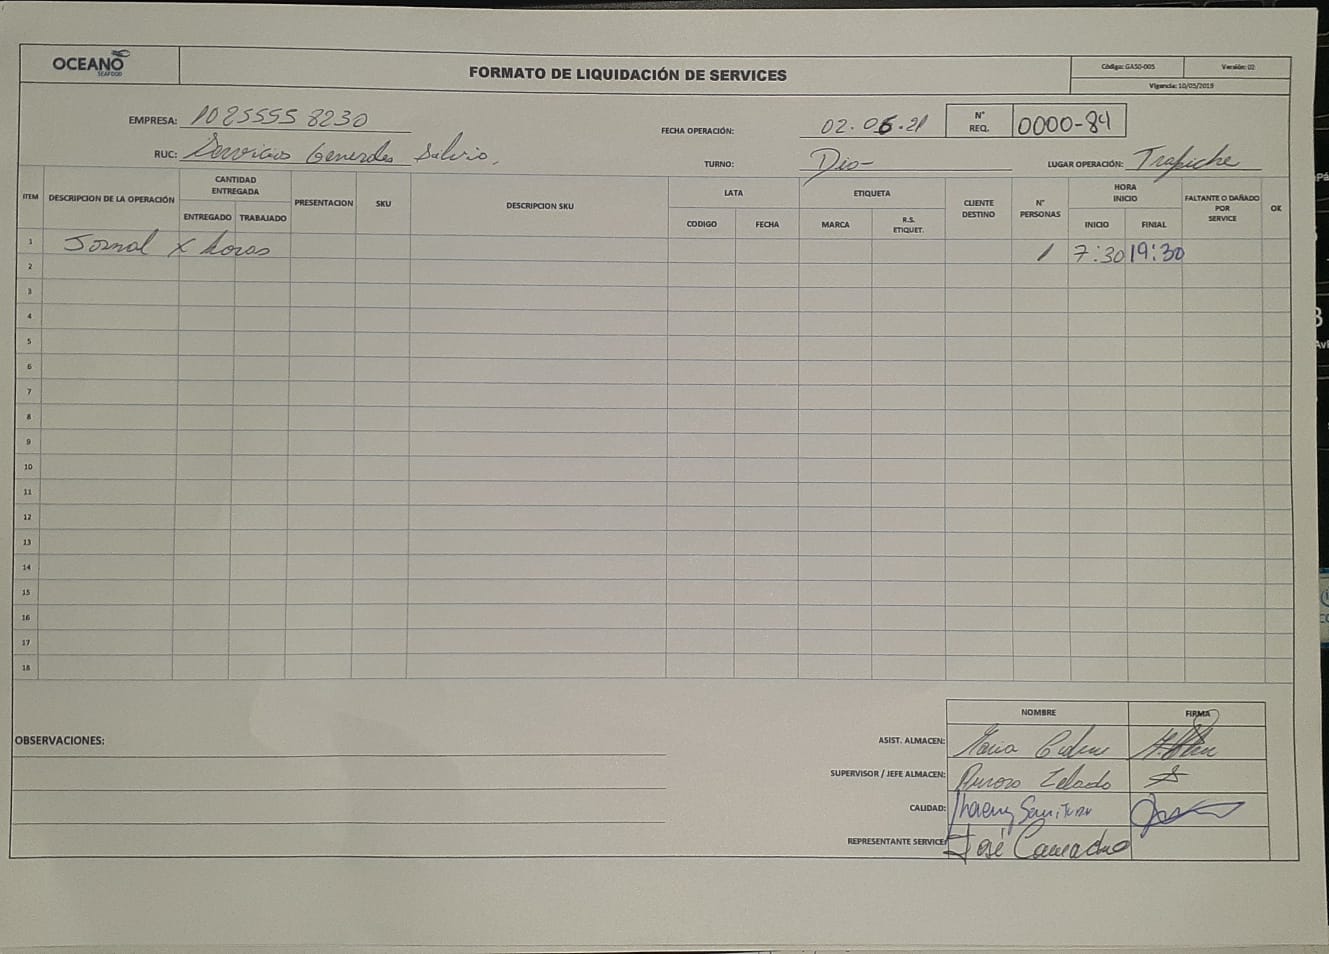 OCEANO
SEAFOOD
FORMATO DE LIQUIDACIÓN DE SERVICES
Código: GASO-005 Versión: 02
Vigencia: 10/05/2019
EMPRESA: 10255558230
FECHA OPERACIÓN: 02.06.21
N° REQ. 0000-84
RUC: Servicios Generales Salvio,
TURNO: Dia-
LUGAR OPERACIÓN: Trapiche
ITEM DESCRIPCION DE LA OPERACIÓN CANTIDAD ENTREGADA ENTREGADO TRABAJADO PRESENTACION SKU DESCRIPCION SKU LATA CODIGO FECHA ETIQUETA MARCA R.S. ETIQUET. CLIENTE DESTINO N° PERSONAS HORA INICIO INICIO FINIAL FALTANTE O DAÑADO POR SERVICE OK
1 Jornal x horas 1 7:30 19:30
2
3
4
5
6
7
8
9
10
11
12
13
14
15
16
17
18
NOMBRE FIRMA
OBSERVACIONES:
ASIST. ALMACEN: Maria
SUPERVISOR / JEFE ALMACEN:
CALIDAD:
REPRESENTANTE SERVICE: José Camacho